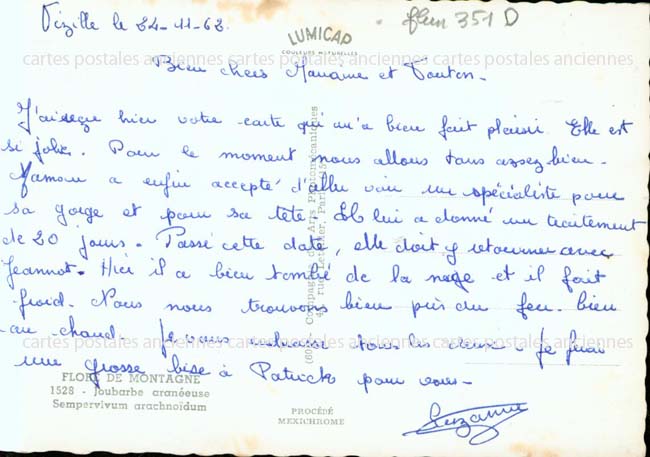 Vizille le 24-11-62.
fleur 351 D
LUMICAP
COULEURS NATURELLES
cartes postales anciennes cartes postales anciennes cartes postales anciennes
Bien chers Maname et Tonton.
J'ai reçu hier votre carte qui m'a bien fait plaisir. Elle est
si jolie. Pour le moment nous allons tous assez bien.
Maman a enfin accepté d'aller voir un spécialiste pour
sa gorge et pour sa tête. Il lui a donné un traitement
de 20 jours. Passé cette date, elle doit y retourner avec
Jeannot. Hier il a bien tombé de la neige et il fait
froid. Nous nous trouvons bien près du feu. bien
au chaud. Je vous embrasse tous les deux. Je ferai
cartes postales anciennes cartes postales anciennes cartes postales anciennes
une grosse bise à Patrick pour vous.
Suzanne
FLORE DE MONTAGNE
1528 - Joubarbe aranéeuse
Sempervivum arachnoïdum
PROCÉDÉ
MEXICHROME
Compagnie des Arts Photomécaniques
45, rue Letellier, Paris-15